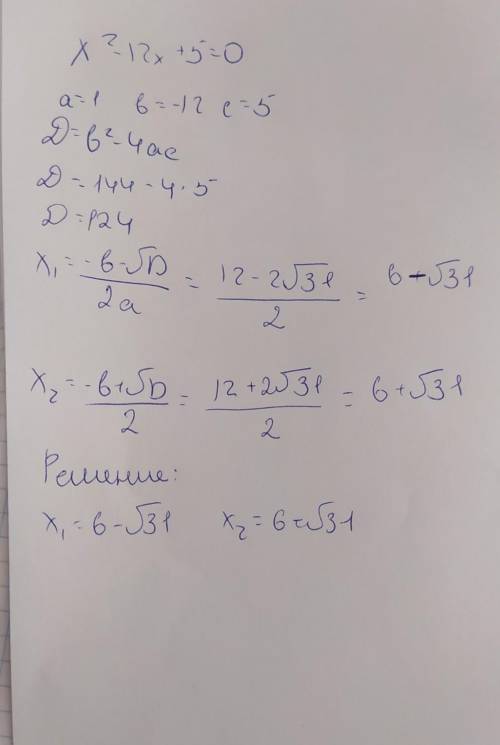 x² - 12x + 5 = 0
a = 1 в = -12 c = 5
D = в² - 4ac
D = 144 - 4 · 5
D = 124
x₁ = (-в - √D)/(2a) = (12 - 2√31)/2 = 6 - √31
x₂ = (-в + √D)/2 = (12 + 2√31)/2 = 6 + √31
Решение:
x₁ = 6 - √31 x₂ = 6 + √31